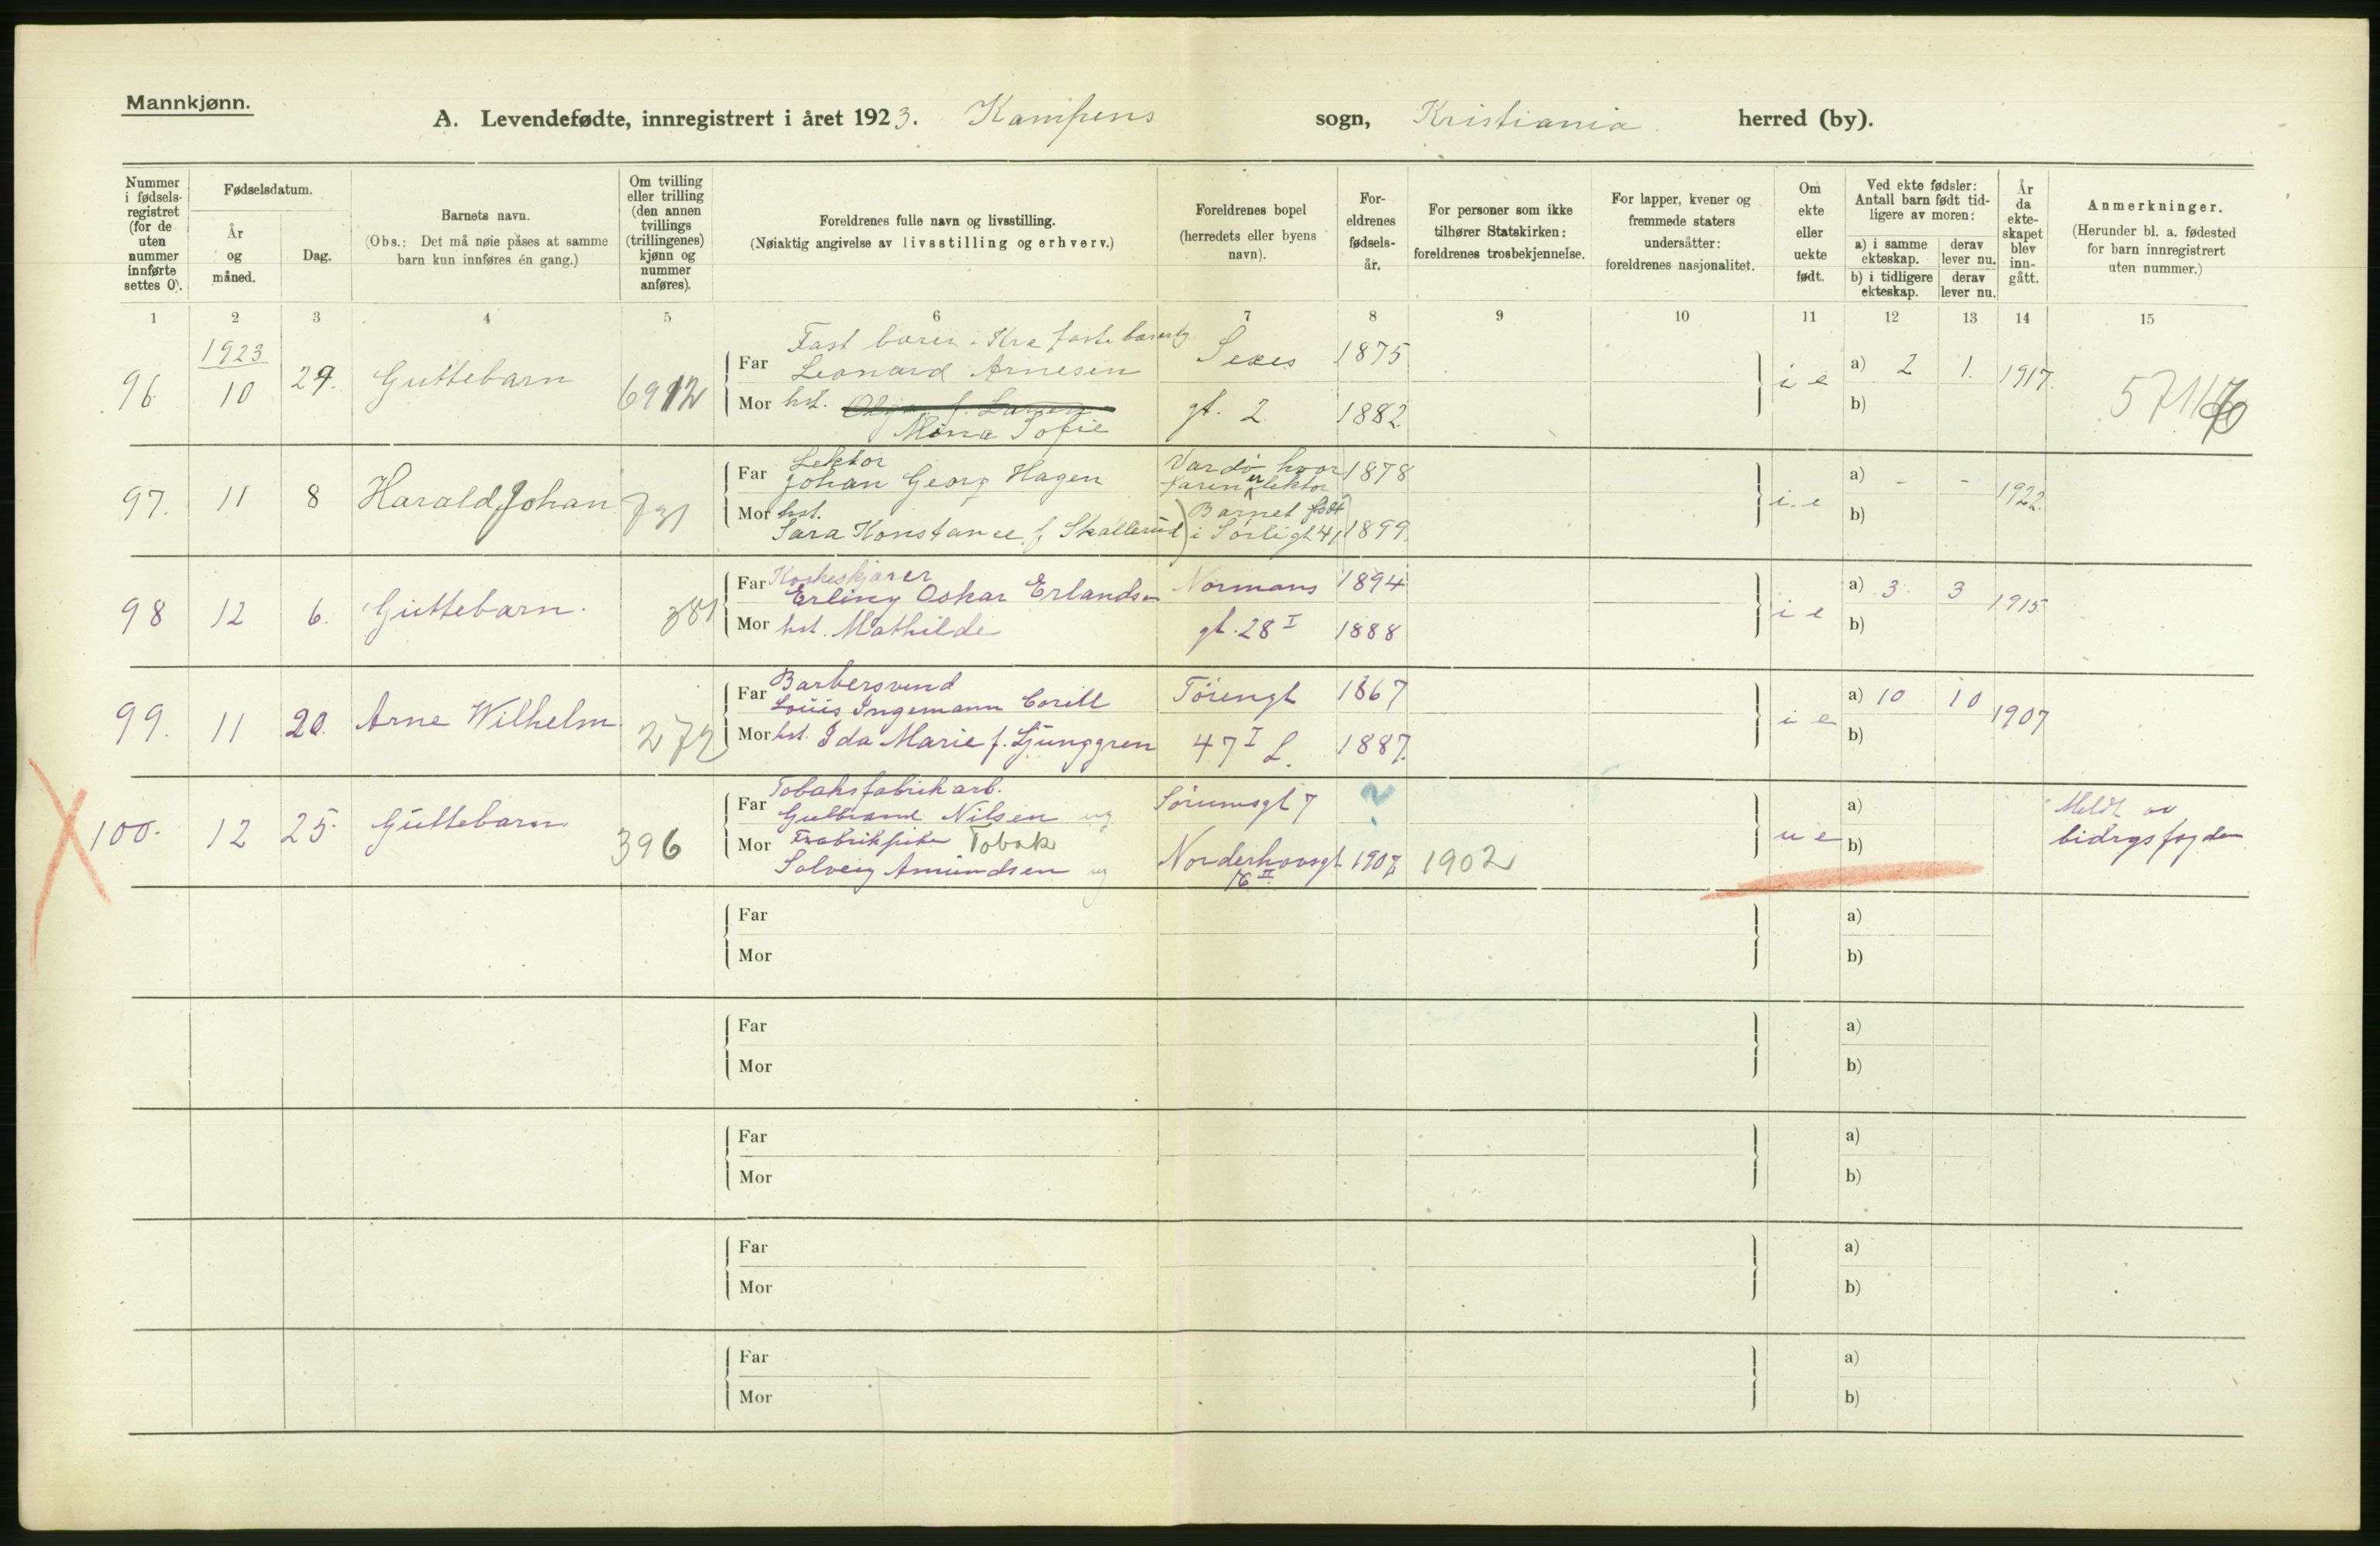 Mannkjønn.
A. Levendefødte, innregistrert i året 1923. Kampens sogn, Kristiania herred (by).
Nummer i fødsels-registret (for de uten nummer innførte settes 0).
Fødselsdatum.
År og måned.
Dag.
Barnets navn.
(Obs.: Det må nøie påses at samme barn kun innføres én gang.)
Om tvilling eller trilling (den annen tvillings (trillingenes) kjønn og nummer anføres).
Foreldrenes fulle navn og livsstilling.
(Nøiaktig angivelse av livsstilling og erhverv.)
Foreldrenes bopel (herredets eller byens navn).
For-eldrenes fødsels-år.
For personer som ikke tilhører Statskirken: foreldrenes trosbekjennelse.
For lapper, kvener og fremmede staters undersåtter: foreldrenes nasjonalitet.
Om ekte eller uekte født.
Ved ekte fødsler: Antall barn født tid-ligere av moren:
a) i samme ekteskap.
derav lever nu.
b) i tidligere ekteskap.
derav lever nu.
År da ekte-skapet blev inn-gått.
Anmerkninger.
(Herunder bl. a. fødested for barn innregistrert uten nummer.)
1 2 3 4 5 6 7 8 9 10 11 12 13 14 15
1923
96. 10 29. Guttebarn 6912
Far Fast
Leonard Arnesen Sexes 1875
Mor hst. Mina Sofie gt. 2 1882
i e a) 2 1. 1917.
b)
97. 11 8 Harald Johan 731
Far Lektor
Johan Georg Hagen Vardö hvor
faren er lektor 1878
Mor hst.
Sara Konstance f. Skallerud) Barnet født
i Sörligt 41 1899.
i. e a) - - 1922.
b)
98 12 6. Guttebarn. 381
Far Korkeskjærer
Erling Oskar Erlandsen Normans 1894
Mor hst. Mathilde gt. 28 I 1888
i e a) 3. 3 1915
b)
99. 11 20. Arne Wilhelm 272
Far Barbersvend
Louis Ingemann Corell Töiengt 1867
Mor hst. Ida Marie f. Ljunggren 47 I L. 1887.
i e a) 10 10 1907
b)
100. 12 25. Guttebarn 396
Far Tobaksfabrikarb.
Gulbrand Nilsen ug Sörumsgt 7 ?
Mor Fabrikpike Tobak
Solveig Amundsen ug Norderhovsgt
16 II 1907 1902
u e a)
b)
Meldt av
bidrgsfogden
Far a)
Mor b)
Far a)
Mor b)
Far a)
Mor b)
Far a)
Mor b)
Far a)
Mor b)